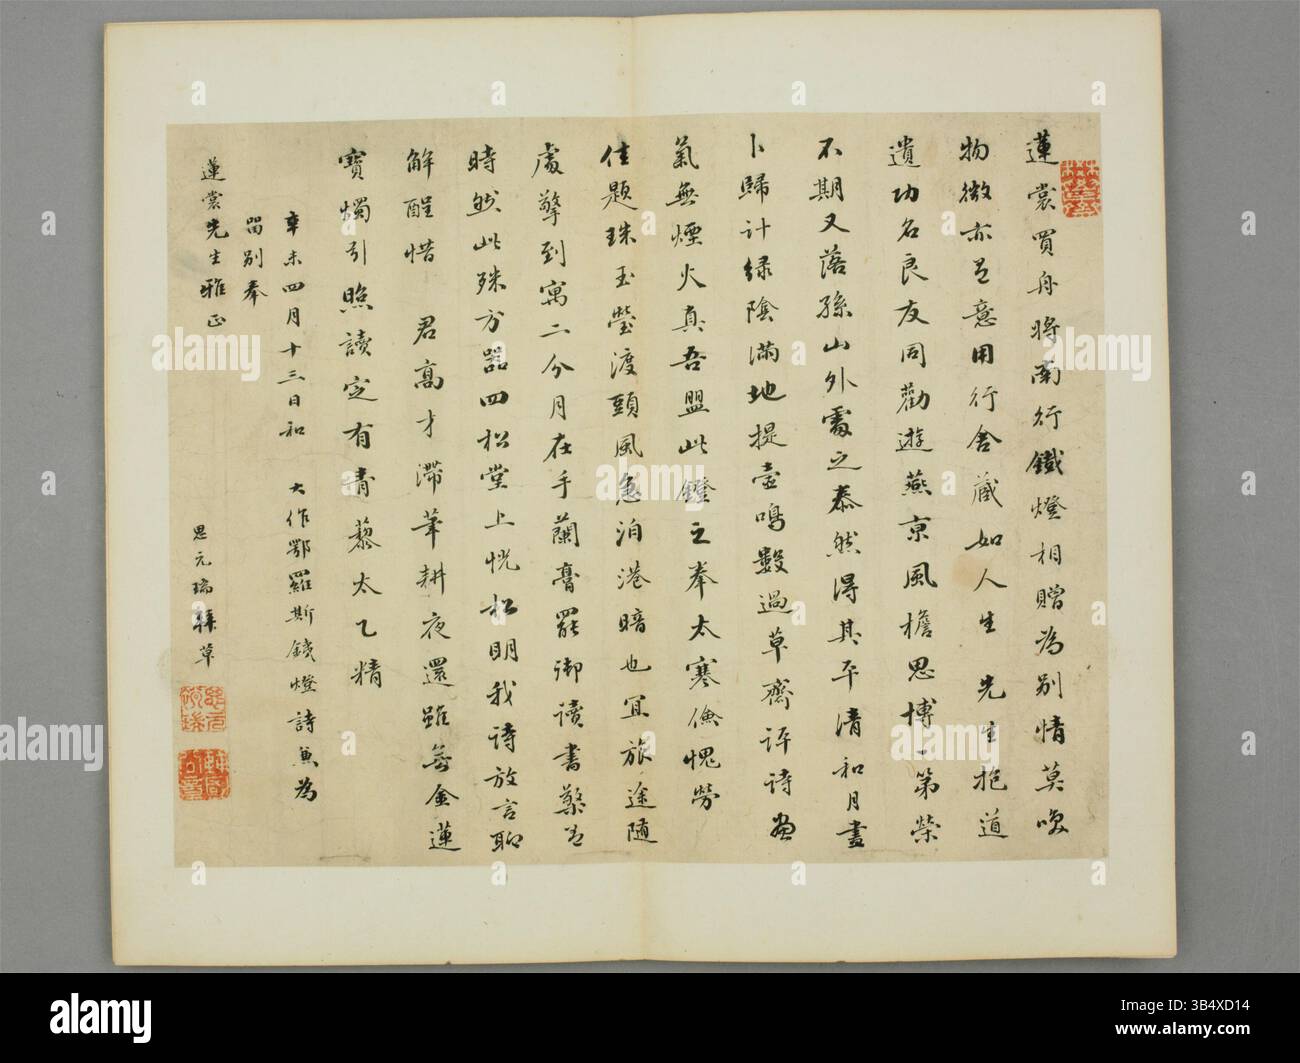 蓮裳買舟將南行鐵燈相贈為別情莫嗤
物微亦足意用行舍藏如人生先生抱道
遺功名良友同勸遊燕京風檐思博一第榮
不期又落孫山外處之泰然得其平清和月晝
卜歸計綠陰滿地提壺鳴數過草齋評詩畫
氣無煙火真吾盟此鐙之奉太寒儉愧勞
佳題珠玉瑩渡頭風急泊港暗也宜旅途隨
處擎到寓二分月在手蘭膏罷御讀書檠有
時然此殊方器四松堂上恍松明我詩放言聊
解酲惜 君高才滯筆耕夜還雖無金蓮
寶燭引照讀定有青藜太乙精
辛未四月十三日和 大作鄂羅斯鐵燈詩兼為
留別奉
蓮裳先生雅正
思元瑞 草
alamy
Image ID: 3B4XD14
www.alamy.com